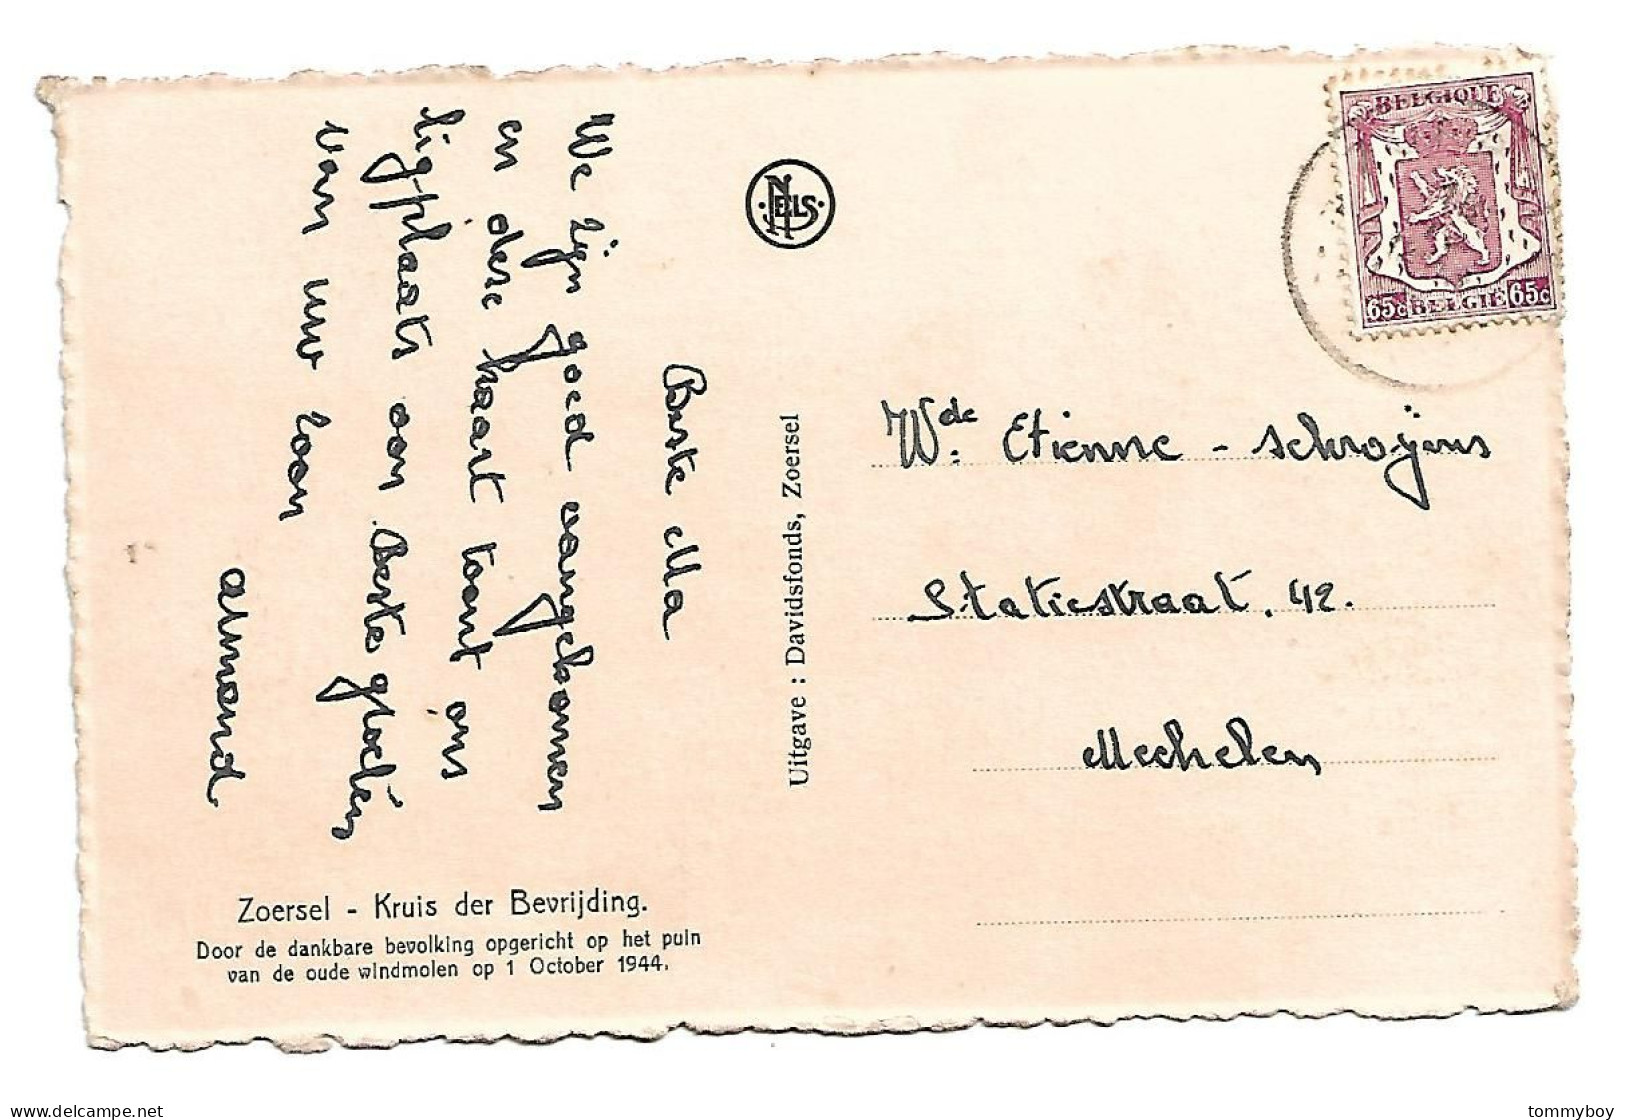 Beste Ma
We zijn goed aangekomen
en deze kaart toont ons
ligplaats aan. Beste groeten
van uw zoon
Armand
Zoersel - Kruis der Bevrijding.
Door de dankbare bevolking opgericht op het puin
van de oude windmolen op 1 October 1944.
NELS
Uitgave : Davidsfonds, Zoersel
BELGIQUE
65c BELGIË 65c
Wde. Etienne - Schroÿens
Statiestraat. 42.
Mechelen
delcampe.net
tommyboy